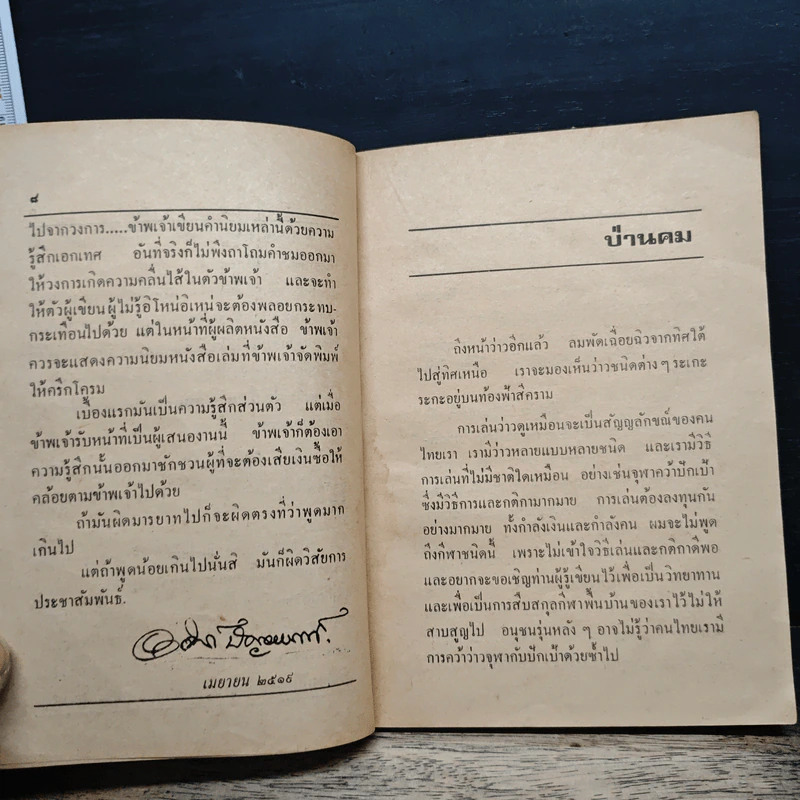 ๘
ไปจากวงการ.....ข้าพเจ้าเขียนคำนิยมเหล่านี้ด้วยความ
รู้สึกเอกเทศ อันที่จริงก็ไม่พึงถาโถมคำชมออกมา
ให้วงการเกิดความคลื่นไส้ในตัวข้าพเจ้า และจะทำ
ให้ตัวผู้เขียนผู้ไม่รู้อิโหน่อิเหน่จะต้องพลอยกระทบ-
กระเทือนไปด้วย แต่ในหน้าที่ผู้ผลิตหนังสือ ข้าพเจ้า
ควรจะแสดงความนิยมหนังสือเล่มที่ข้าพเจ้าจัดพิมพ์
ให้ครึกโครม
เบื้องแรกมันเป็นความรู้สึกส่วนตัว แต่เมื่อ
ข้าพเจ้ารับหน้าที่เป็นผู้เสนองานนี้ ข้าพเจ้าก็ต้องเอา
ความรู้สึกนั้นออกมาชักชวนผู้ที่จะต้องเสียเงินซื้อให้
คล้อยตามข้าพเจ้าไปด้วย
ถ้ามันผิดมารยาทไปก็จะผิดตรงที่ว่าพูดมาก
เกินไป
แต่ถ้าพูดน้อยเกินไปนั่นสิ มันก็ผิดวิสัยการ
ประชาสัมพันธ์.
เมษายน ๒๕๑๙
ป่านคม
ถึงหน้าว่าวอีกแล้ว ลมพัดเฉื่อยฉิวจากทิศใต้
ไปสู่ทิศเหนือ เราจะมองเห็นว่าวชนิดต่าง ๆ ระเกะ
ระกะอยู่บนท้องฟ้าสีคราม
การเล่นว่าวดูเหมือนจะเป็นสัญญลักขณ์ของคน
ไทยเรา เรามีว่าวหลายแบบหลายชนิด และเรามีวิธี
การเล่นที่ไม่มีชาติใดเหมือน อย่างเช่นจุฬาคว้าปักเป้า
ซึ่งมีวิธีการและกติกามากมาย การเล่นต้องลงทุนกัน
อย่างมากมาย ทั้งกำลังเงินและกำลังคน ผมจะไม่พูด
ถึงกีฬาชนิดนี้ เพราะไม่เข้าใจวิธีเล่นและกติกาดีพอ
และอยากจะขอเชิญท่านผู้รู้เขียนไว้เพื่อเป็นวิทยาทาน
และเพื่อเป็นการสืบสกุลกีฬาพื้นบ้านของเราไว้ไม่ให้
สาบสูญไป อนุชนรุ่นหลัง ๆ อาจไม่รู้ว่าคนไทยเรามี
การคว้าว่าวจุฬากับปักเป้าด้วยซ้ำไป